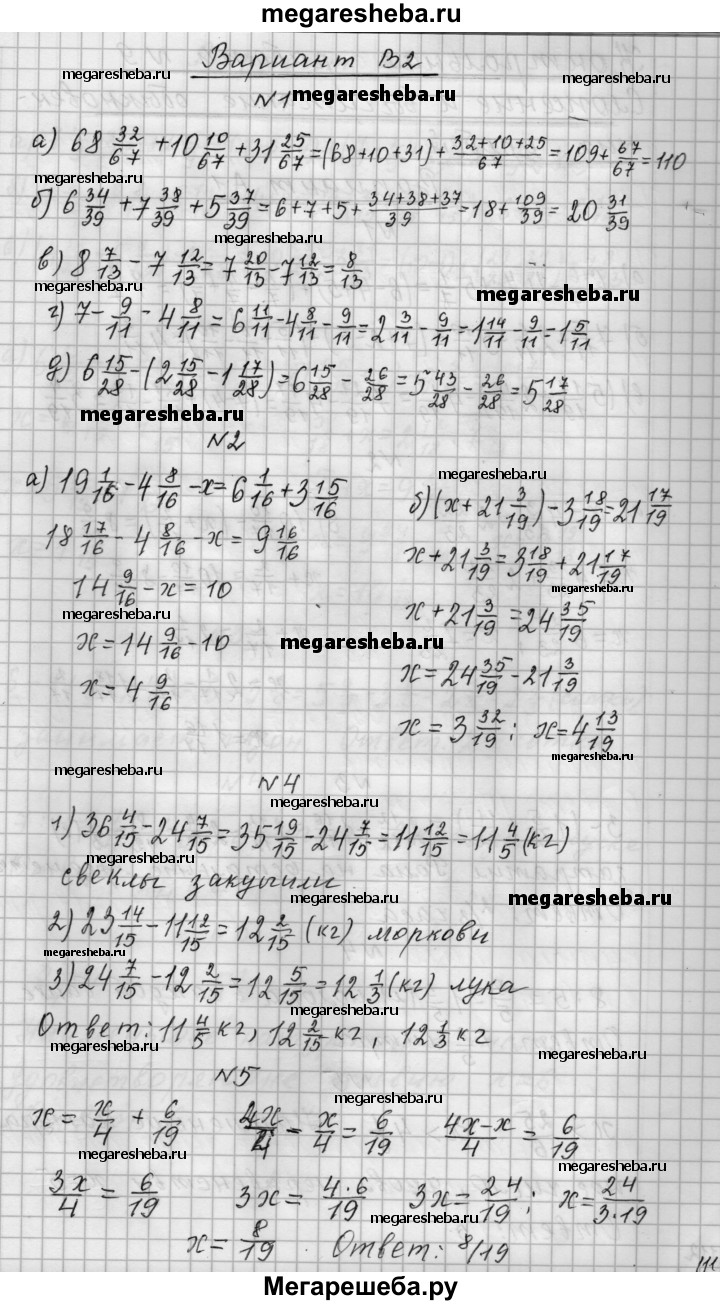 megaresheba.ru
Вариант В2
megaresheba.ru megaresheba.ru
№1 megaresheba.ru
а) 68 32/67 + 10 10/67 + 31 25/67 = (68+10+31) + (32+10+25)/67 = 109 + 67/67 = 110
megaresheba.ru
б) 6 34/39 + 7 38/39 + 5 37/39 = 6+7+5+ (34+38+37)/39 = 18 + 109/39 = 20 31/39
megaresheba.ru
в) 8 7/13 - 7 12/13 = 7 20/13 - 7 12/13 = 8/13
megaresheba.ru megaresheba.ru
г) 7 - 9/11 - 4 8/11 = 6 11/11 - 4 8/11 - 9/11 = 2 3/11 - 9/11 = 1 14/11 - 9/11 = 1 5/11
megaresheba.ru
д) 6 15/28 - (2 15/28 - 1 17/28) = 6 15/28 - 26/28 = 5 43/28 - 26/28 = 5 17/28
megaresheba.ru
№2
а) 19 1/16 - 4 8/16 - x = 6 1/16 + 3 15/16
18 17/16 - 4 8/16 - x = 9 16/16
14 9/16 - x = 10
megaresheba.ru
x = 14 9/16 - 10
megaresheba.ru
x = 4 9/16
megaresheba.ru
б) (x + 21 3/19) - 3 18/19 = 21 17/19
x + 21 3/19 = 3 18/19 + 21 17/19
megaresheba.ru
x + 21 3/19 = 24 35/19
x = 24 35/19 - 21 3/19
x = 3 32/19; x = 4 13/19
megaresheba.ru megaresheba.ru
№4
1) 36 4/15 - 24 7/15 = 35 19/15 - 24 7/15 = 11 12/15 = 11 4/5 (кг)
megaresheba.ru
свеклы закупили
megaresheba.ru megaresheba.ru
2) 23 14/15 - 11 12/15 = 12 2/15 (кг) моркови
megaresheba.ru
3) 24 7/15 - 12 2/15 = 12 5/15 = 12 1/3 (кг) лука
megaresheba.ru
Ответ: 11 4/5 кг, 12 2/15 кг, 12 1/3 кг
megaresheba.ru megaresheba.ru
№5
megaresheba.ru
x = x/4 + 6/19 4x/4 - x/4 = 6/19 (4x-x)/4 = 6/19
megaresheba.ru megaresheba.ru
3x/4 = 6/19 3x = 4·6/19 3x = 24/19; x = 24/3·19
megaresheba.ru megaresheba.ru
x = 8/19 Ответ: 8/19
Мегарешеба.ру